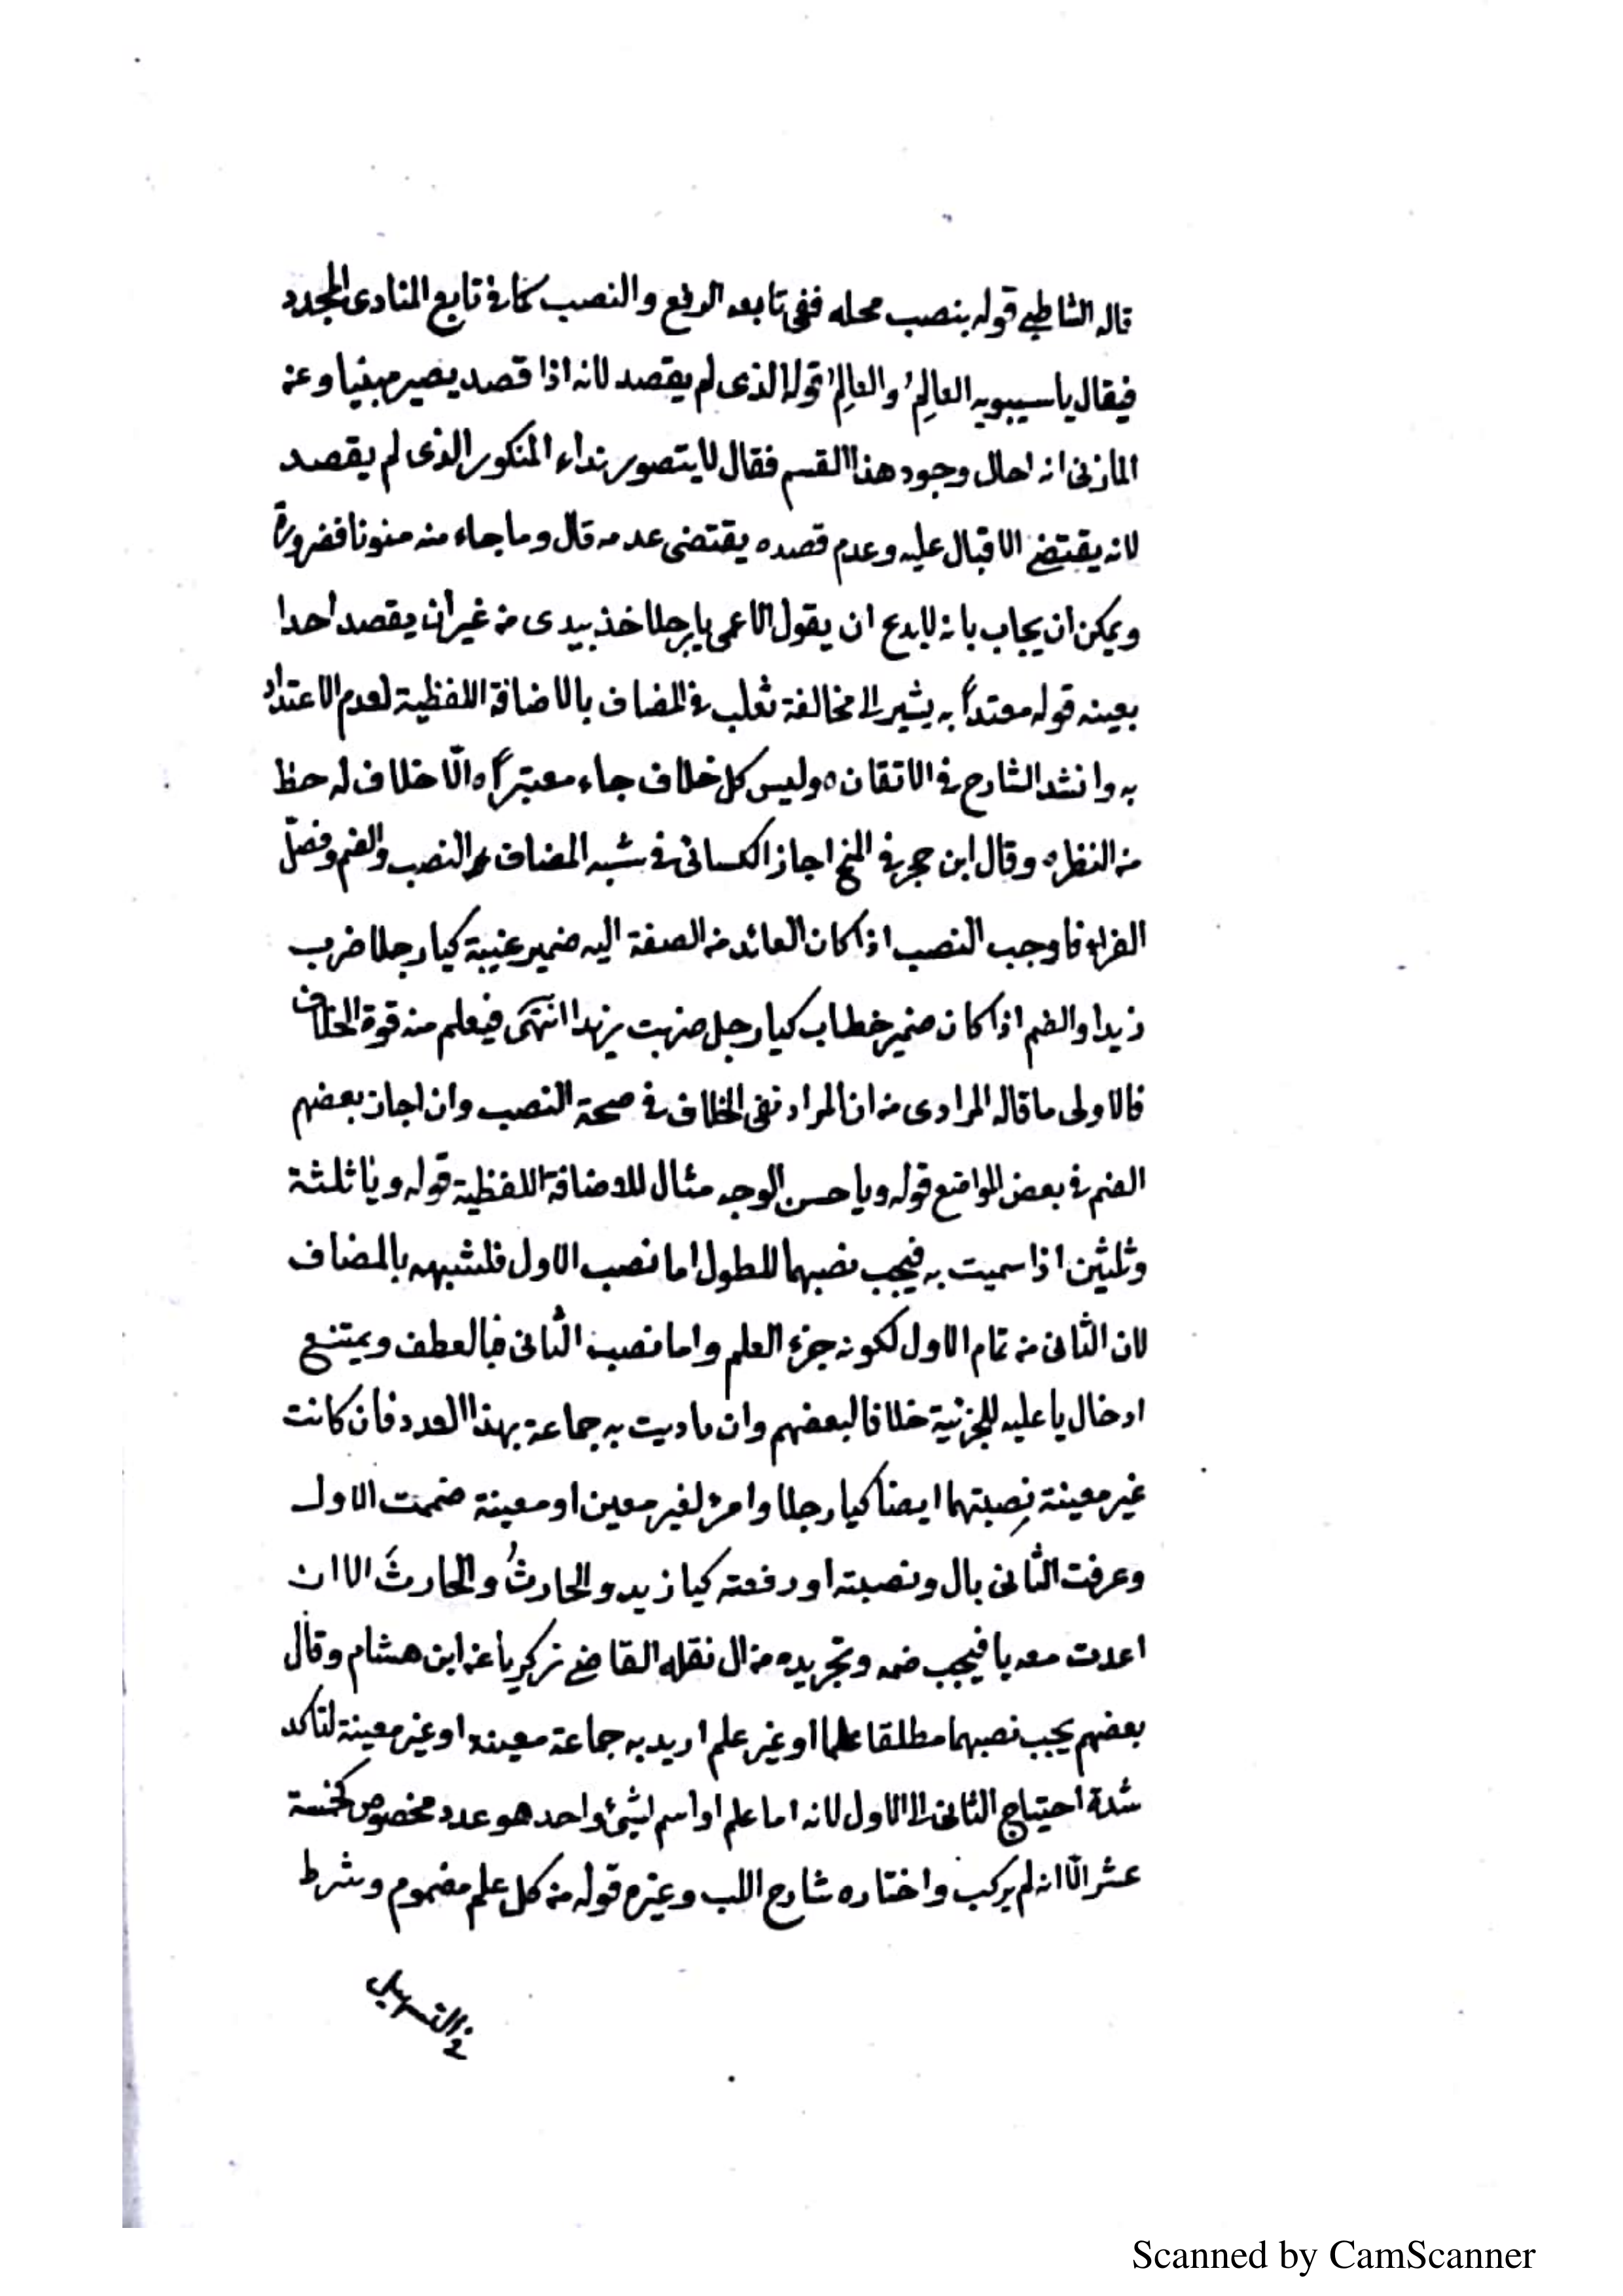 قاله الشاطبي قوله بنصب محله ففي تابعه الرفع والنصب كما في تابع المنادى المجدد
فيقال يا سيبويه العالِمُ والعالِمَ قوله الذى لم يقصد لانه اذا قصد يصير مبنيا وعن
المازنى انه احال وجود هذا القسم فقال لا يتصور نداء المنكور الذى لم يقصد
لانه يقتضي الاقبال عليه وعدم قصده يقتضى عدمه قال وما جاء منه منونا فضرورة
ويمكن ان يجاب بانه لا بدع ان يقول الاعمى يا رجلا خذ بيدى من غير ان يقصد احدا
بعينه قوله معتداً به يشير الى مخالفة ثعلب في المضاف بالاضافة اللفظية لعدم الاعتداد
به وانشد الشارح في الاتقان ه وليس كل خلاف جاء معتبراً ه الّا خلاف له حظ
من النظر ه وقال ابن حجر في المنح اجاز الكسائى في شبه المضاف النصب والضم وفصّل
الفراء فاوجب النصب اذا كان العائد من الصفة اليه ضمير غيبة كيا رجلا ضرب
زيدا والضم اذا كان ضمير خطاب كيا رجل ضربت زيدا انتهى فيعلم منه قوة الخلاف
فالاولى ما قاله المرادى من ان المراد نفى الخلاف في صحة النصب وان اجاز بعضهم
الضم في بعض المواضع قوله ويا حسن الوجه مثال للاضافة اللفظية قوله ويا ثلثة
وثلثين اذا سميت به فيجب نصبهما للطول اما نصب الاول فلشبهه بالمضاف
لان الثانى من تمام الاول لكونه جزء العلم واما نصب الثانى فبالعطف ويمتنع
ادخال يا عليه للجزئية خلافا لبعضهم وان ناديت به جماعة بهذا العدد فان كانت
غير معينة نصبتهما ايضا كيا رجلا وامرأة لغير معين او معينة ضممت الاول
وعرفت الثانى بال ونصبته او رفعته كيا زيد والحارثُ والحارثَ الا ان
اعدت معه يا فيجب ضمه وتجريده من ال نقله القاضي زكريا عن ابن هشام وقال
بعضهم يجب نصبهما مطلقا علما او غير علم اريد به جماعة معينة او غير معينة لتاكد
شدة احتياج الثانى الى الاول لانه اما علم او اسم لشئ واحد هو عدد مخصوص كخمسة
عشر الّا انه لم يركب واختاره شارح اللب وغيره قوله من كل علم مضموم وشرط
في التسهيل
Scanned by CamScanner